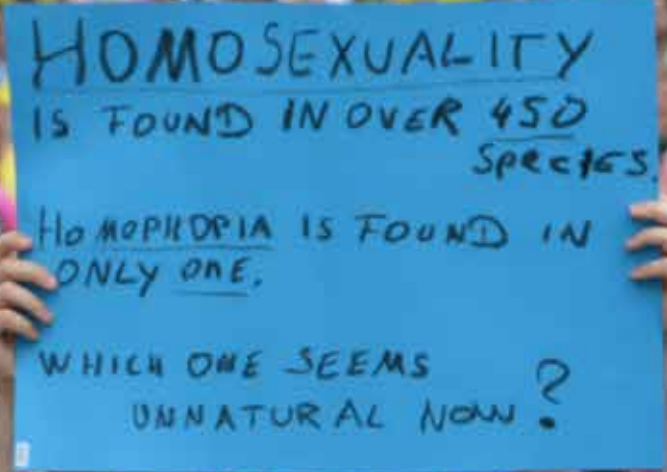 HOMOSEXUALITY
IS FOUND IN OVER 450
SPECIES.
HOMOPHOPIA IS FOUND IN
ONLY ONE.
WHICH ONE SEEMS
UNNATURAL NOW?